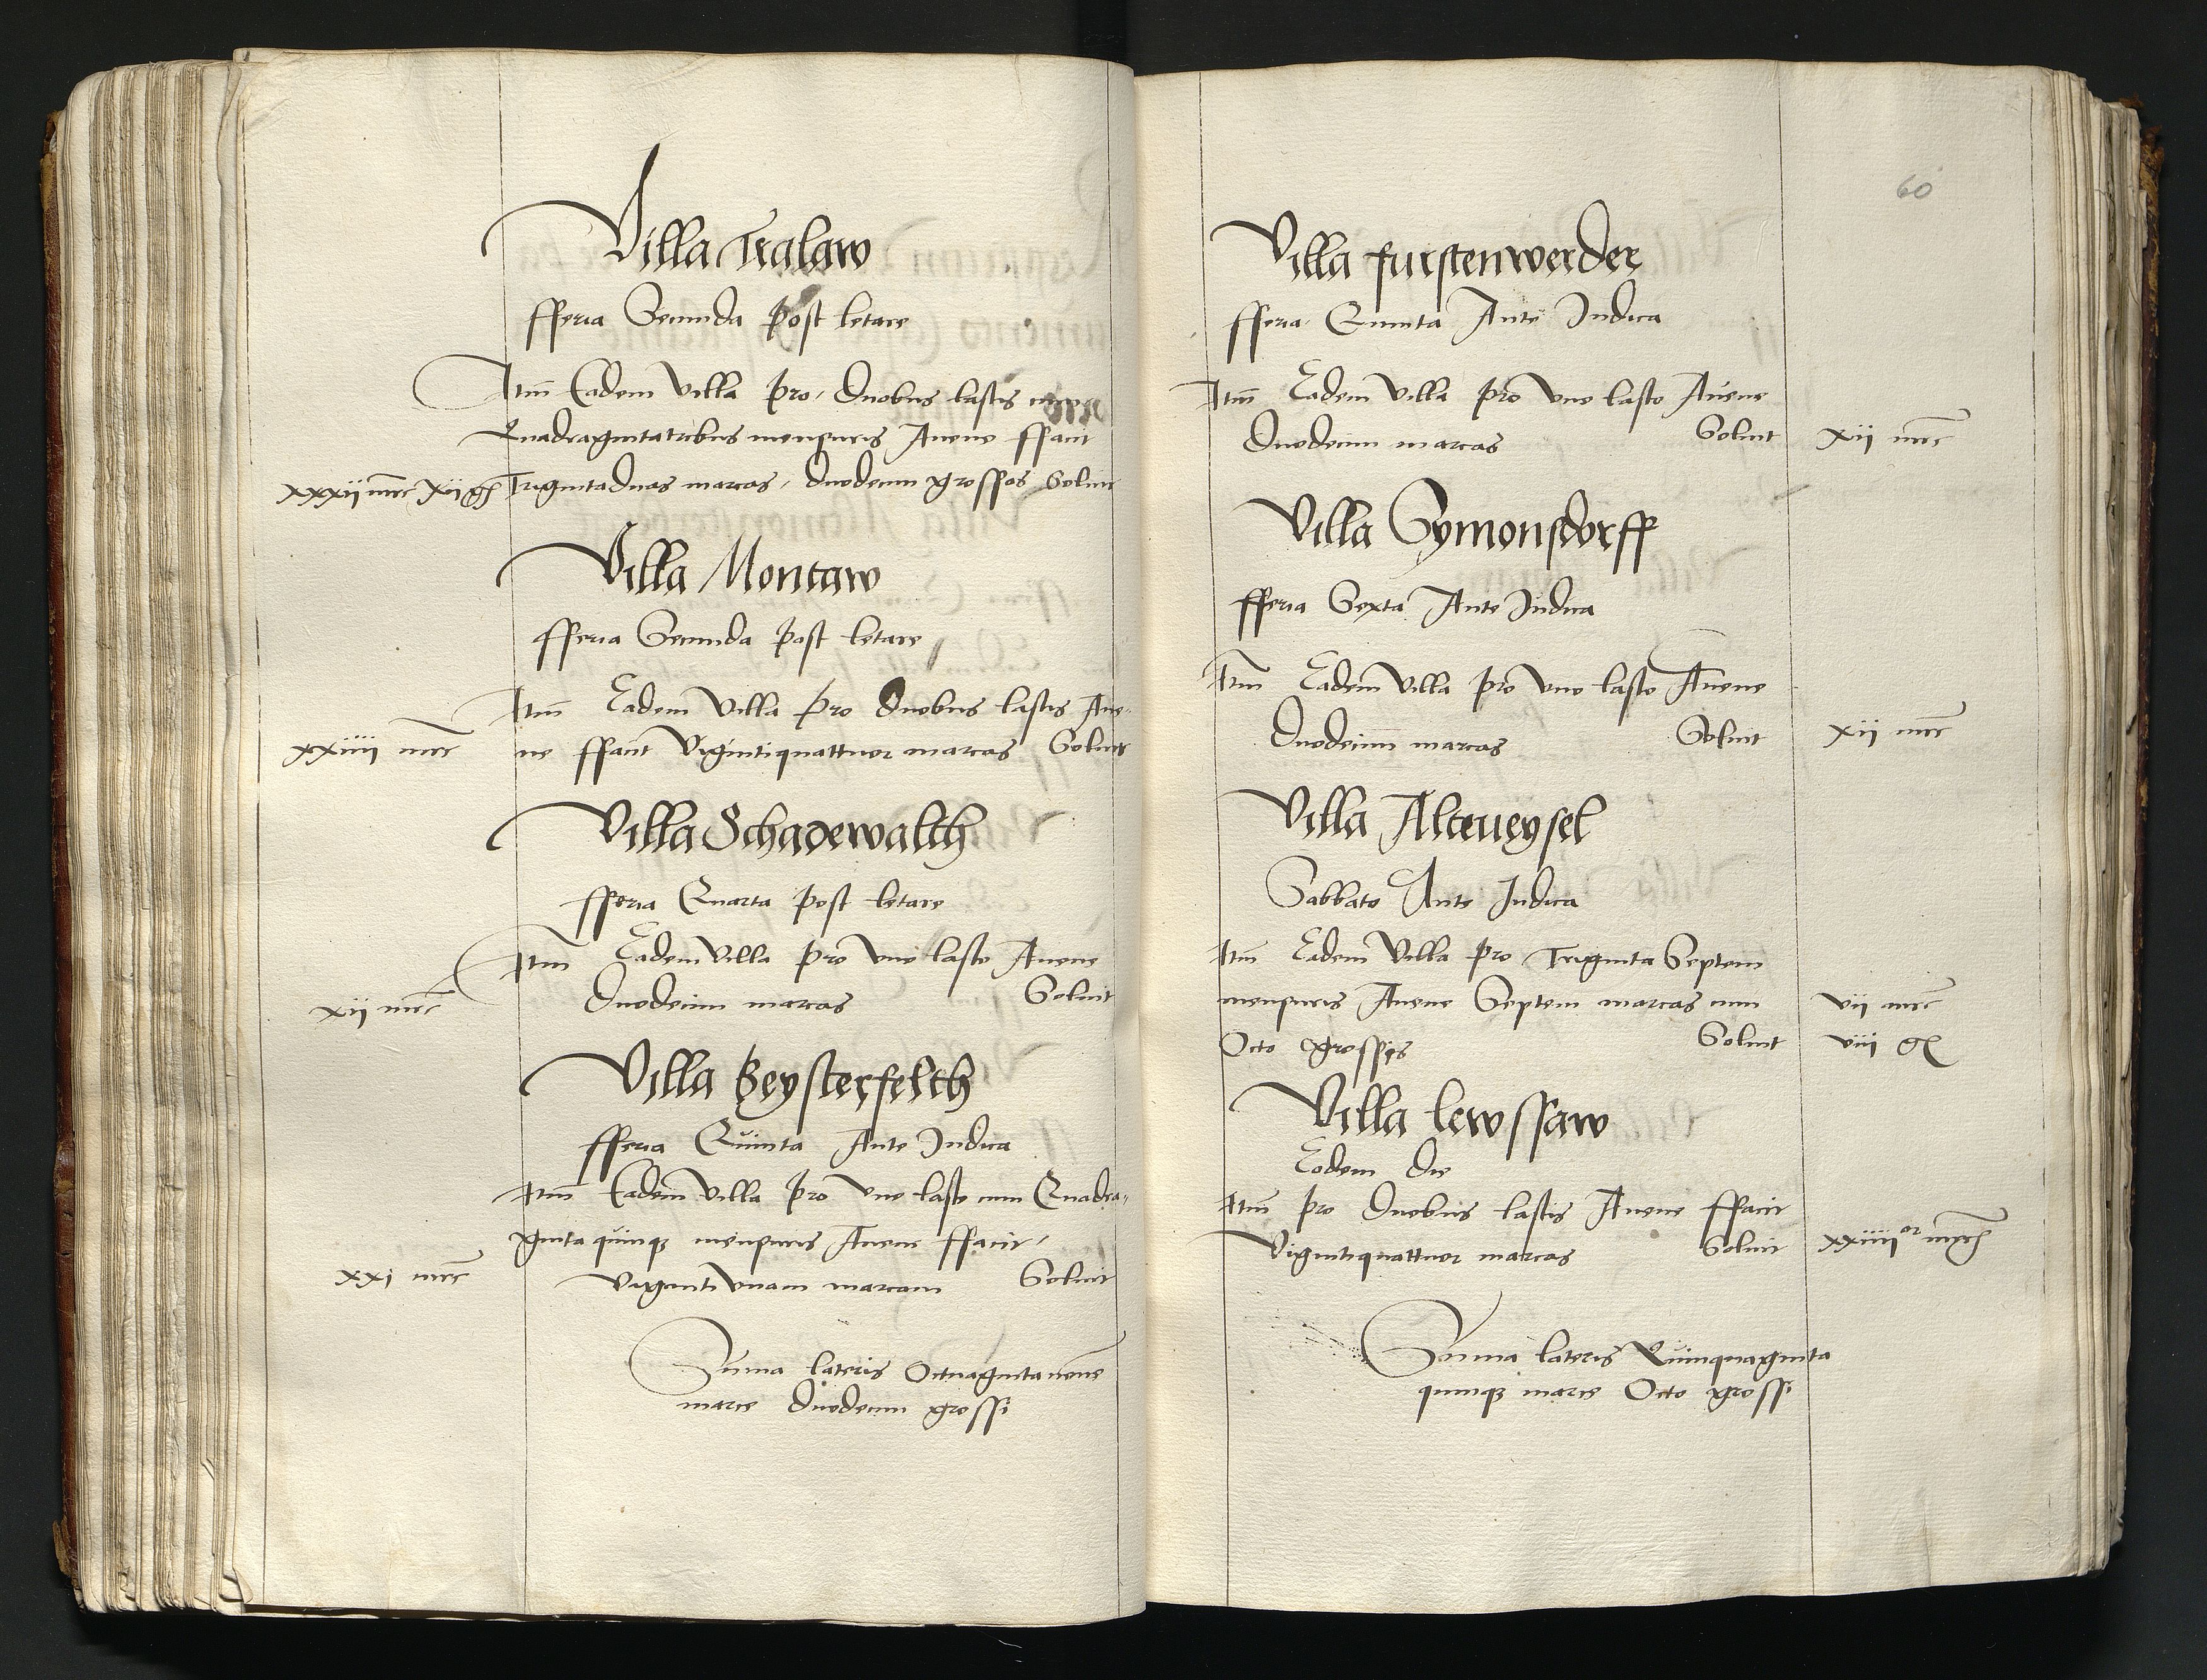 Villa Tralaw
fferia Secunda post letare
Itm Eadem villa pro duobus lastis cum
Quadragintatribus mensuris Avene ffacit
xxxii mrc xii gr Trigintaduas marcas, duodecim grossos Soluit
Villa Montaw
fferia Secunda post letare
Itm Eadem villa pro duobus lastis Ave-
xxiiii mrc ne ffacit vigintiquattuor marcas Soluit
Villa Schadewalth
fferia Quarta post letare
Itm Eadem villa pro uno lasto Avene
xii mrc Duodecim marcas Soluit
Villa Beysterfelth
fferia Quinta Ante Iudica
Itm Eadem villa pro uno lasto cum Quadra-
ginta quinqz mensuris Avene ffacit,
xxi mrc viginti unam marcam Soluit
Summa lateris Octuagintanovem
marce duodecim grossi
60
Villa furstenwerder
fferia Quinta Ante Iudica
Itm Eadem villa pro uno lasto Avene
Duodecim marcas Soluit xii mrc
Villa Symonsdorff
fferia Sexta Ante Iudica
Itm Eadem villa pro uno lasto Avene
Duodecim marcas Soluit xii mrc
Villa Alteweysel
Sabbato Ante Iudica
Itm Eadem villa pro Triginta Septem
mensuris Avene Septem marcas cum vii mrc
Octo grossis Soluit viii gr
Villa lewssaw
Eodem die
Itm pro duobus lastis Avene ffacit
Vigintiquattuor marcas Soluit xxiiii or mrc
Summa lateris Quinquaginta
quinqz marce Octo grossi